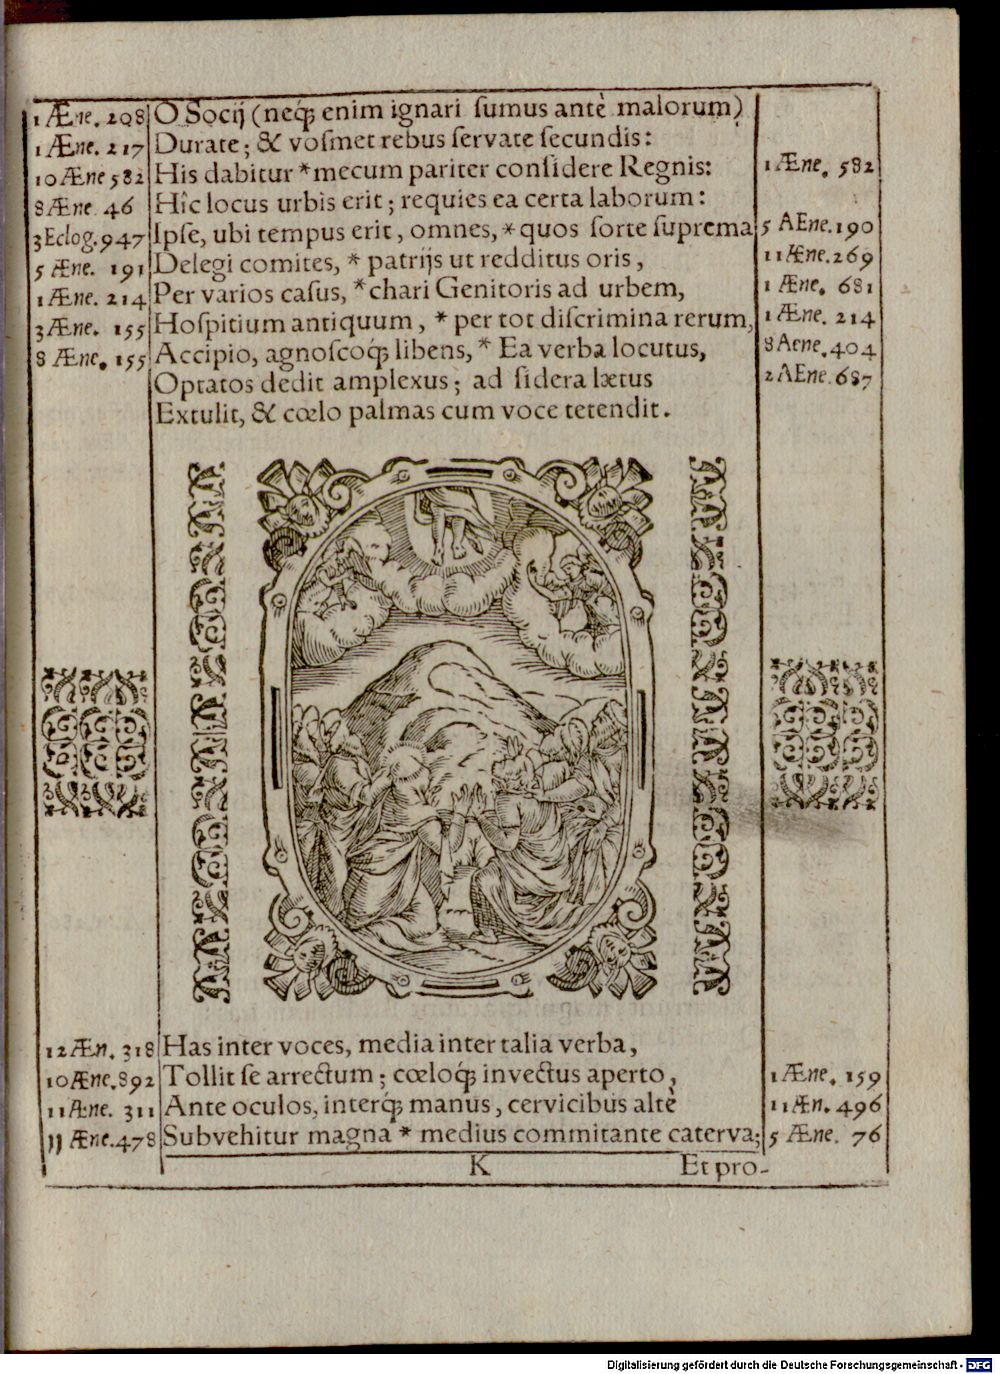 1 Æne. 208 O Socij (neq́; enim ignari sumus antè malorum)
1 Æne. 217 Durate; & vosmet rebus servate secundis:
10 Æne 582 His dabitur * mecum pariter considere Regnis: 1 Æne. 582
8 Æne. 46 Hîc locus urbis erit; requies ea certa laborum:
3 Eclog. 947 Ipse, ubi tempus erit, omnes, * quos sorte suprema 5 AEne. 190
5 Æne. 191 Delegi comites, * patrijs ut redditus oris, 11 Æne. 269
1 Æne. 214 Per varios casus, * chari Genitoris ad urbem, 1 Æne. 681
3 Æne. 155 Hospitium antiquum, * per tot discrimina rerum, 1 Æne. 214
8 Æne. 155 Accipio, agnoscoq́; libens, * Ea verba locutus, 8 Aene. 404
Optatos dedit amplexus; ad sidera lætus 2 AEne. 687
Extulit, & cœlo palmas cum voce tetendit.
12 Æn. 318 Has inter voces, media inter talia verba,
10 Æne. 892 Tollit se arrectum; cœloq́; invectus aperto, 1 Æne. 159
11 Æne. 311 Ante oculos, interq́; manus, cervicibus altè 11 Æn. 496
11 Æne. 478 Subvehitur magna * medius commitante caterva; 5 Æne. 76
K Et pro-
Digitalisierung gefördert durch die Deutsche Forschungsgemeinschaft - DFG